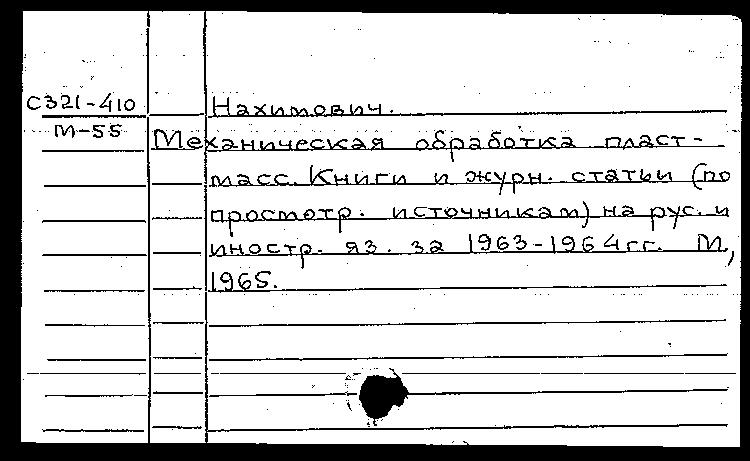 С321-410 Нахимович.
М-55 Механическая обработка пласт-
масс. Книги и журн. статьи (по
просмотр. источникам) на рус. и
иностр. яз. за 1963-1964 гг. М.,
1965.